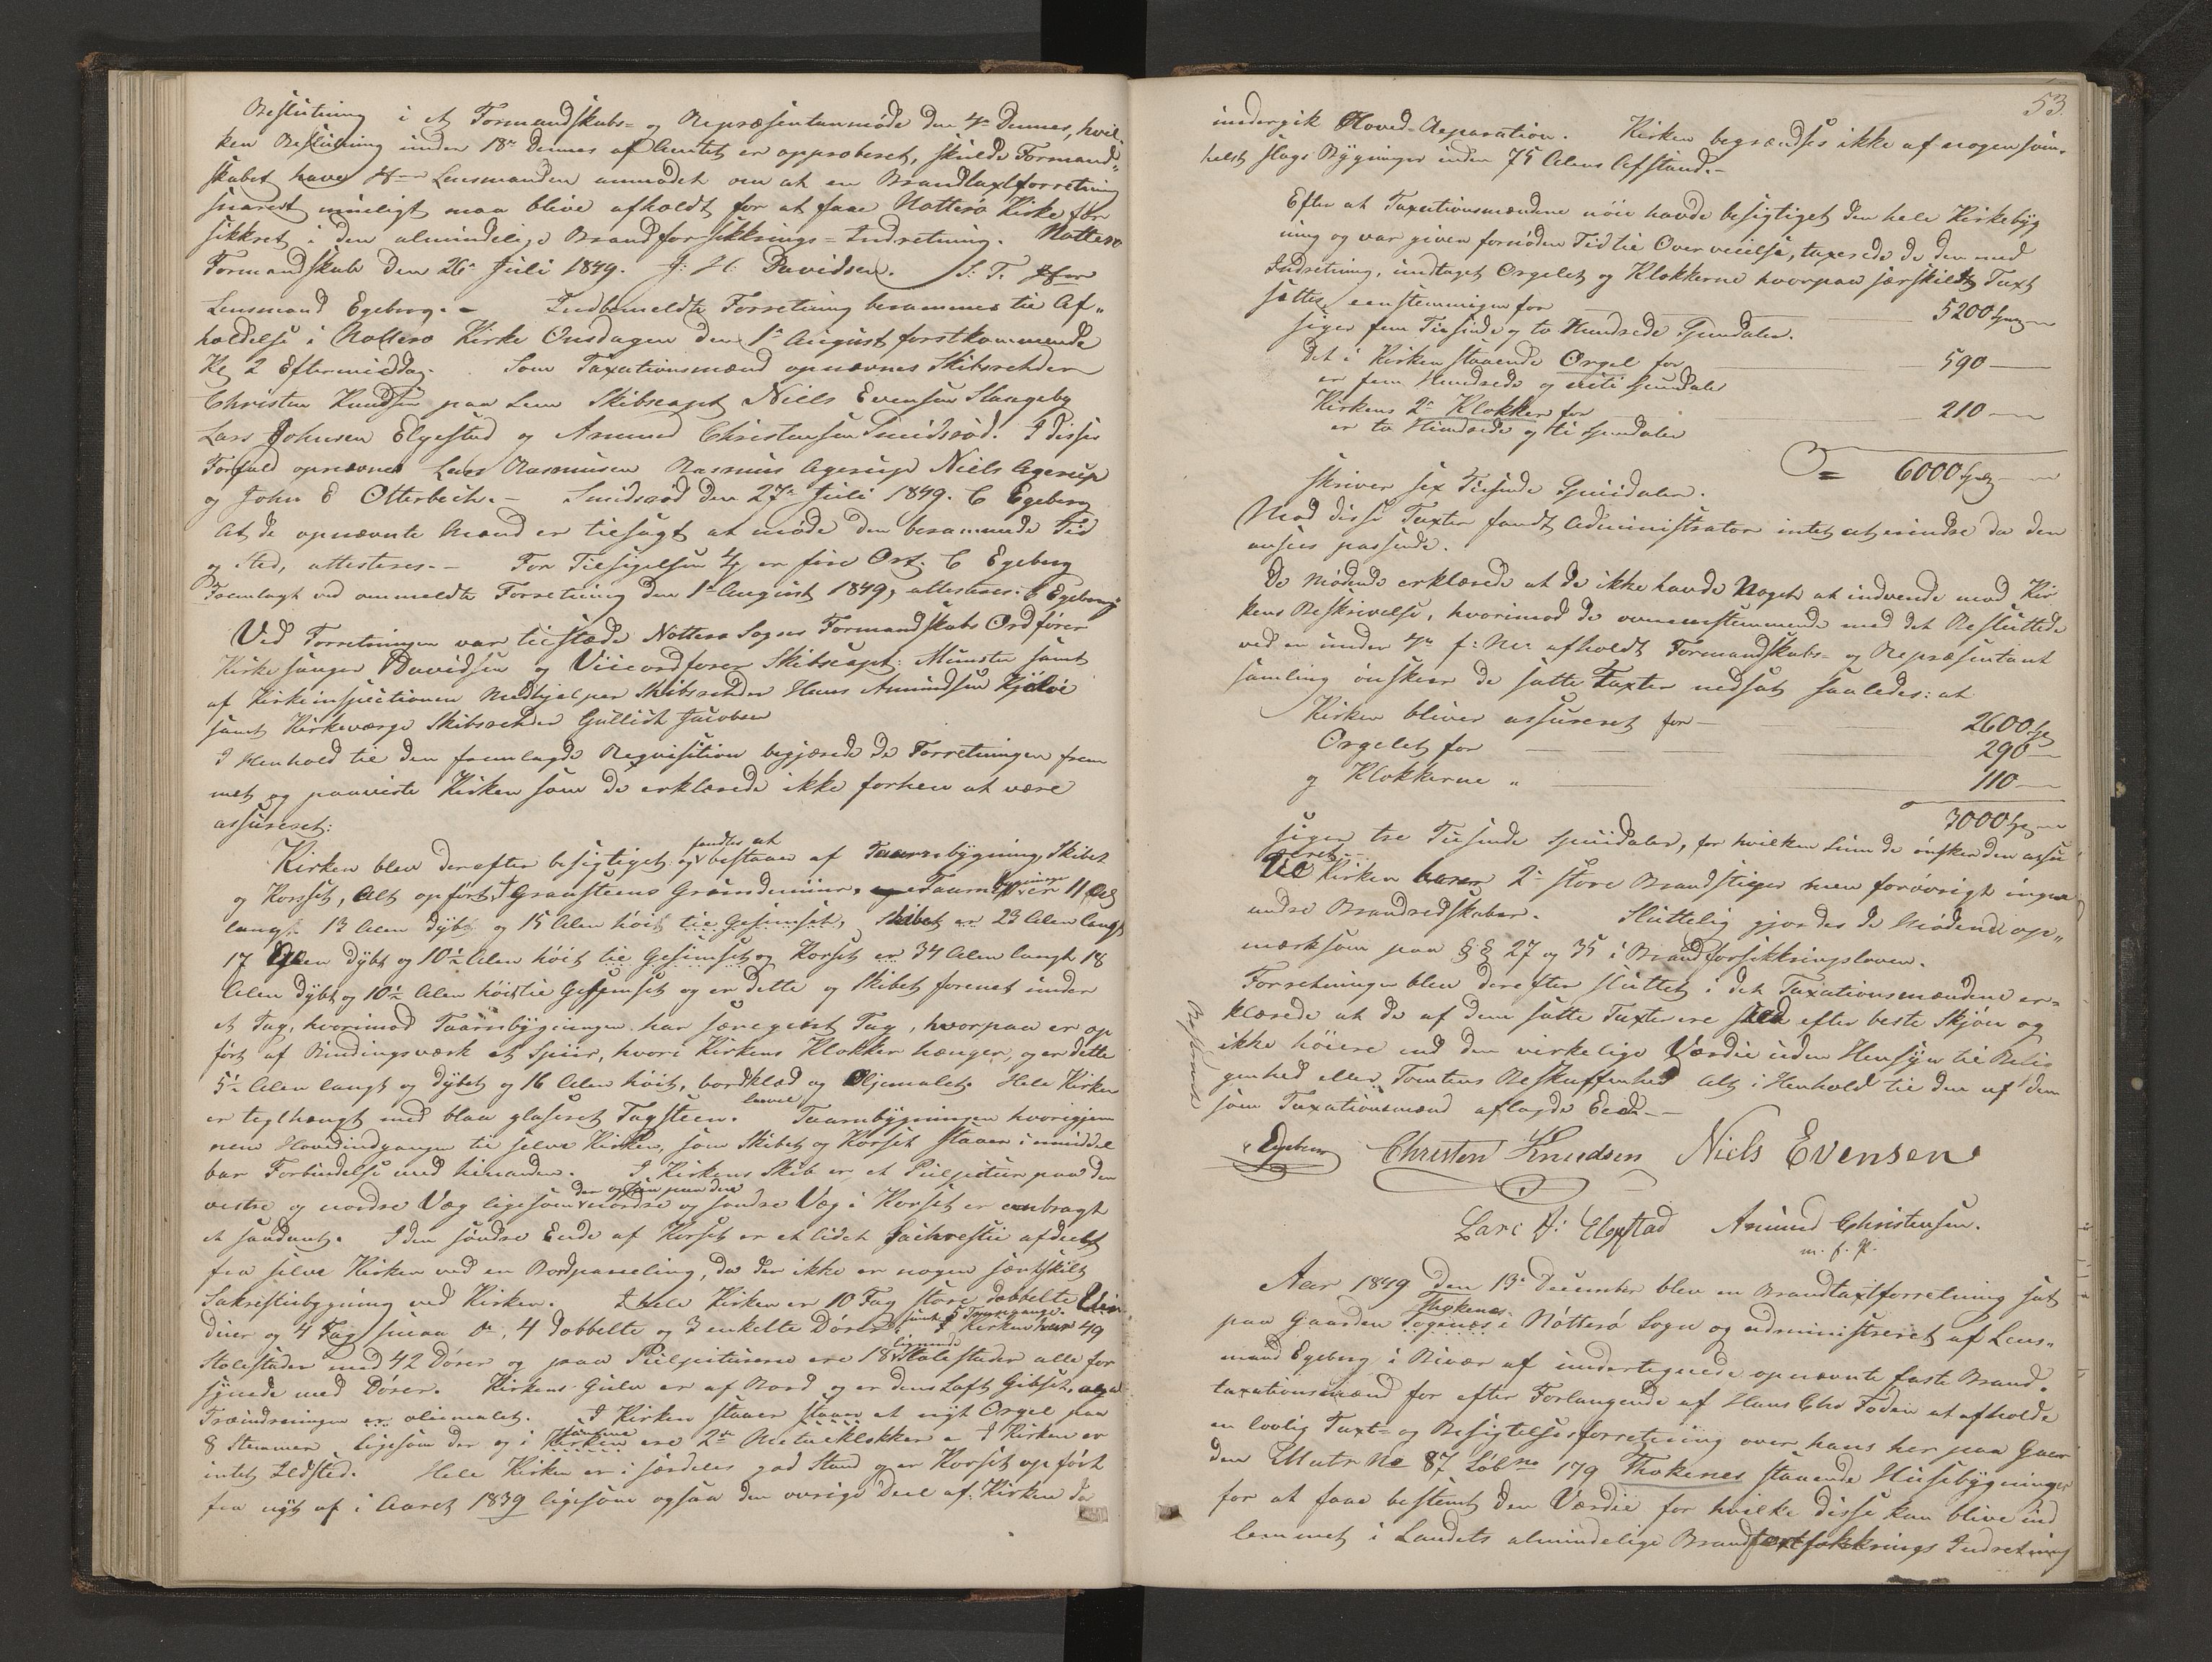 Beslutning i et Formandskabs- og Repræsentanmöde den 4de Dennes, hvil
ken Beslutning under 18de dennes af Amtet er approberet, skulde Formand-
skabet have Hr Lensmanden anmodet om at en Brandtaxtforretning
snarest mueligt maa blive afholdt for at faae Nøtterø Kirke for
sikkret i den almindelige Brandforsikkrings-Indretning. Nøtterø
Formandskab den 26de Juli 1849. J: H: Davidsen. S. T. Hr
Lensmand Egeberg. - Indbemeldte Forretning berammes til Af-
holdelse i Nøtterø Kirke Onsdagen den 1ste August førstkommende
Kl 2 Eftermiddag. Som Taxationsmænd opnævnes Skibsrehder
Christen Knudsen paa Lem Skibscapt Niels Evensen Slangeby
Lars Johnsen Elgestad og Amund Christensen Smidsrød. I disses
Forfald opnævnes Lars Rasmussen Rasmus Agerup Niels Agerup
og John E Otterbech. - Smidsrød den 27de Juli 1849. C Egeberg
At de opnævnte Mænd er tilsagt at møde den berammede Tid
og Sted, attesteres. - For Tilsigelsen 4 er fire Ort. C Egeberg
Fremlagt ved ommeldte Forretning den 1ste August 1849, attesteres. C Egeberg
Ved Forretningen var tilstæde Nøtterø Sogns Formandskabs Ordfører
Kirkesanger Davidsen og Viceordfører Skibscapt: Münster samt
af Kirkeinspectionen Medhjelper Skibsrehder Hans Amundsen Kjøløe
samt Kirkeværge Skibsrehder Gullich Jacobsen
I Henhold til den fremlagde Reqvisition begjærede de Forretningen frem
met og paaviste Kirken som de erklærede ikke forhen at være
assureret:
Kirken blev derefter besigtiget og fandtes at bestaae af Taarnbygning Skibet
og Korset, Alt opført Graasteens Grundmuur. Taarnbygningen er 11 Al
langt 13 Alen dybt og 15 Alen høit til Gesimset, Skibet er 23 Alen langt
17 Alen dybt og 10½ Alen høit til Gesimset og Korset er 34 Alen langt 18
Alen dybt og 10½ Alen høit til Gesimset og er dette og Skibet forenet under
et Tag, hvorimod Taarnbygningen har særegent Tag, hvorpaa er op
ført af Bindingsværk et Spiir, hvori Kirkens Klokker hænger, og er dette
5½ Alen langt og dybt og 16 Alen høit, bordklæd og Oljemalet. Hele Kirken
er teglhængt med blaa glaseret Tagsteen. Taarnbygningen hvorigjem
nem Hovedindgangen til selve Kirken, som Skibet og Korset staaer i umiddel
bar Forbindelse med hinanden. I Kirkens Skib er et Pulpitur paa den
vestre og nordre Væg ligesom der ogsaa paa den nordre og søndre Væg i Korset er anbragt
et saadant. I den søndre Ende af Korset er et lidet Sachrestie afdeelt
fra selve Kirken ved en Bordpaneling, da der ikke er nogen særskilt
Sakrestiebygning ved Kirken. I hele Kirken er 10 Fag store dobbelte Vin
duer og 4 Fag smaa do, 4 dobbelte og 3 enkelte Dører. I Kirken har 49
Stolestader med 42 Dører og paa Pulpiturerne ere 18 lignende Stolestader alle for
synede med Dører. Kirkens Gulv er af Bord og er dens Loft Gibset,
Træindreiningen er oliemalet. I Kirken staaer staaer et nyt Orgel paa
8 Stemmer ligesom der og i Kirken Taarne ere 2de Metalklokker. I Kirken er
intet Ildsted. Hele Kirken er i særdeles god Stand og er Korset opført
fra nyt af i Aaret 1839 ligesom ogsaa den øvrige Deel af Kirken da
53.
undergik Hoved-Reparation. Kirken begrændses ikke af nogensom
helst Slags Bygninger inden 75 Alens Afstand. -
Efter at Taxationsmændene nöie havde besigtiget den hele Kirkebyg
ning og var given fornöden Tid til Overveielse, taxerede de den med
Indretning, undtaget Orgelet og Klokkerne hvorpaa særskildt Taxt
sattes, eenstemmigen for 5200 Spd
siger fem Tusinde og to Hundrede Speciedaler.
Det i Kirken staaende Orgel for 590
er fem Hundrede og niti Speciedaler
Kirkens 2de Klokker for 210
er to Hundrede og ti Speciedaler
= 6000 Spd
skriver sex Tusinde Speciedaler.
Mod disse Taxter fandt Administrator intet at erindre da den
ansees passende.
De Mødende erklærede at de ikke havde Noget at indvende mod Kir
kens Beskrivelse, hvorimod de overeensstemmende med det Besluttede
ved en under 4de f: M: afholdt Formandskabs- og Repræsentant
samling önsker de satte Taxter nedsat saaledes: at
Kirken bliver assureret for - 2600 Sp
Orgelet for 290
og Klokkerne " 110
3000 Sp
siger tre Tusinde Speciedaler, for hvilken Sum de önsker den assu
reret. -
Til Kirken hører 2de store Brandstiger men forövrigt ingen
andre Brandredskaber. Sluttelig gjordes de Mødende op-
mærksom paa §§ 27 og 35 i Brandforsikkringsloven.
Forretningen blev derefter sluttet i det Taxationsmændene er-
klærede at de af dem satte Taxter ere skeed efter beste Skjøn og
ikke höiere end den virkelige Værdie uden Hensyn til Belig
genhed eller Tomtens Beskaffenhed Alt i Henhold til den af dem
som Taxationsmænd aflagde Eed. -
Beskrevet
C Egeberg Christen Knudsen Niels Evensen
Lars J: Elgestad Amund Christensen.
m. f. P.
Aar 1849 den 13de December blev en Brandtaxtforretning sat
paa Gaarden Togenæs Thokenæs i Nøtterø Sogn og administreret af Lens-
mand Egeberg i Nærvær af undertegnede opnævnte faste Brand-
taxationsmænd for efter Forlangende af Hans Chr Foden at afholde
en lovlig Taxt- og Besigtelsesforretning over hans her paa Gaar
den Matr No 87 Löbno 179 Thokenes staaende Huusebygninger
for at faae bestemt den Værdie for hvilke disse kan blive ind
lemmet i Landets almindelige Brandforsikkrings Indretning